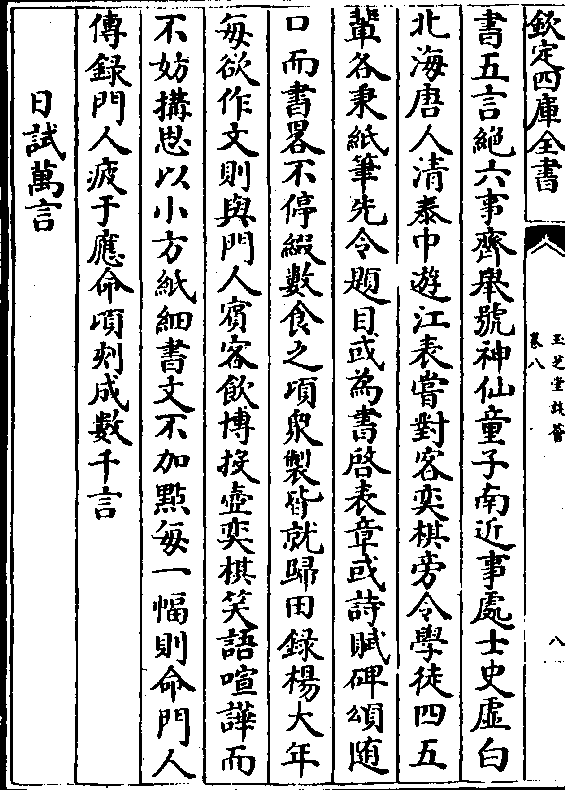 欽定四庫全書
玉芝堂談薈
卷八
八
書五言絶六事齊舉號神仙童子南近事處士史虛白
北海唐人清泰中遊江表嘗對客奕棋旁令學徒四五
輩各秉紙筆先令題目或為書啓表章或詩賦碑頌随
口而書畧不停綴數食之頃衆製皆就歸田録楊大年
毎欲作文則與門人賓客飲博投壺奕棋笑語喧譁而
不妨搆思以小方紙細書文不加點毎一幅則命門人
傳録門人疲于應命頃刻成數千言
日試萬言